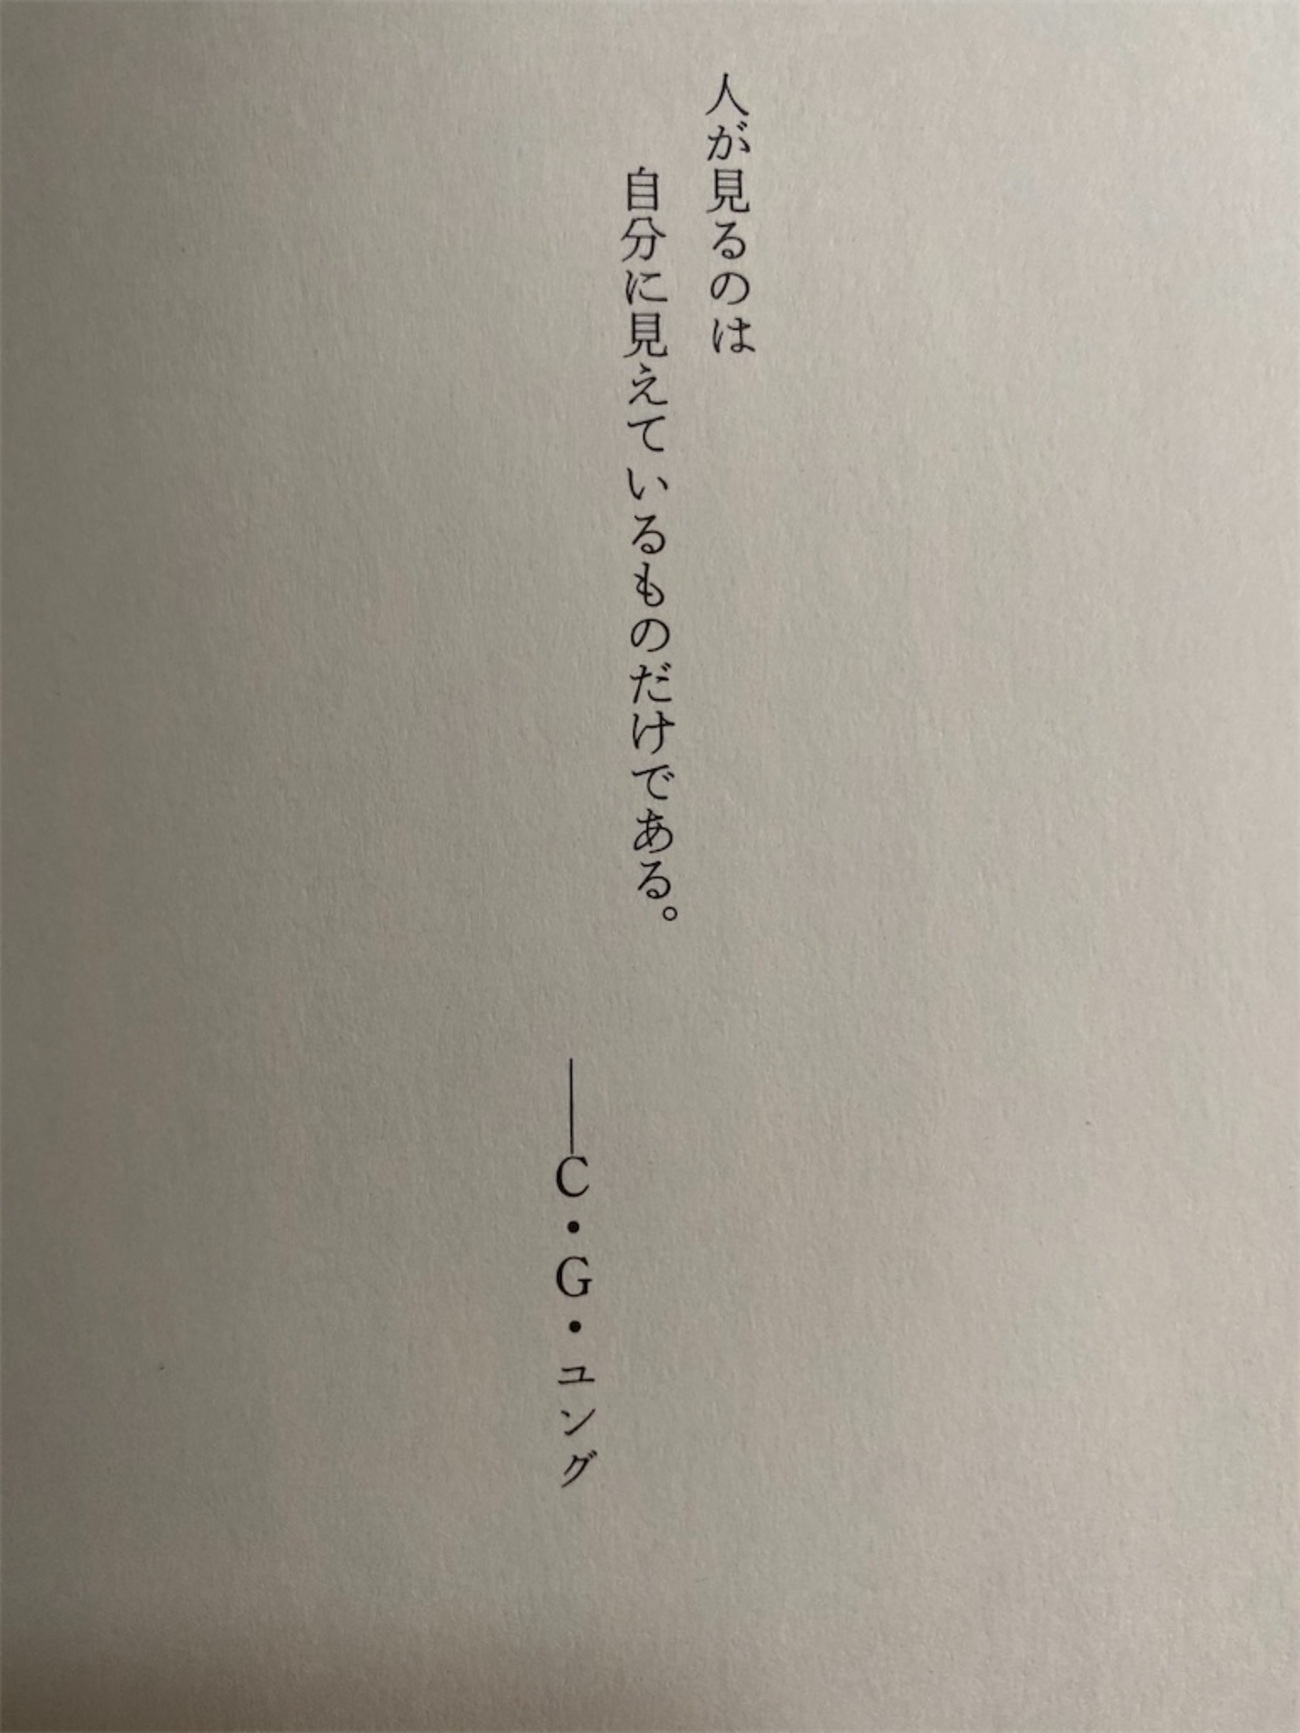 人が見るのは
自分に見えているものだけである。
——C・G・ユング